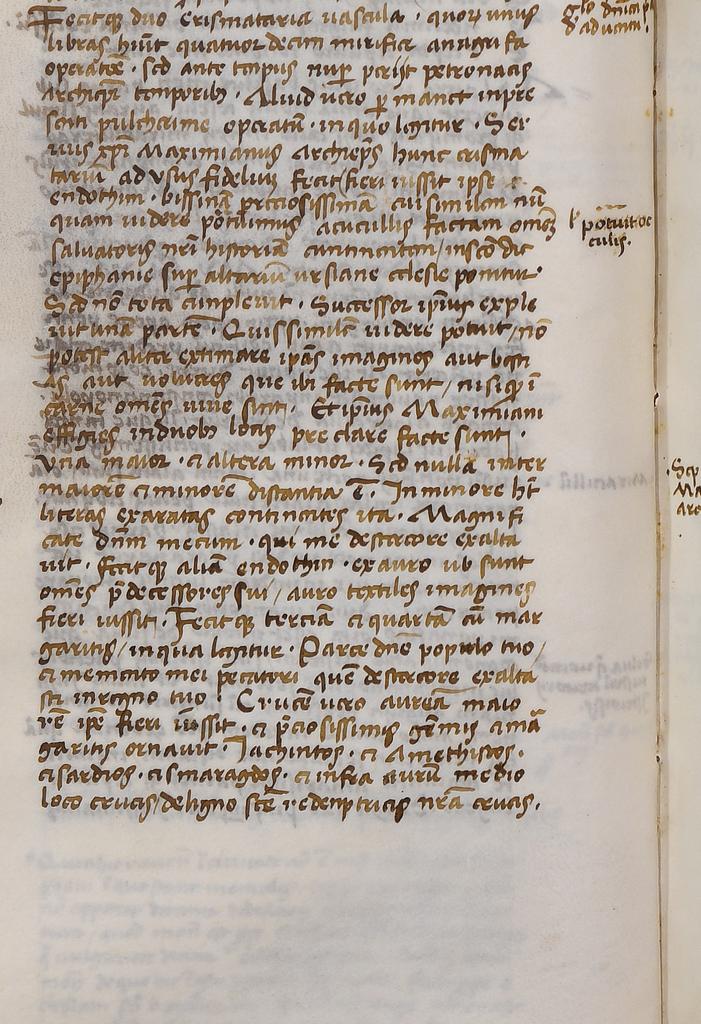 Fecitque duo crismataria vascula · quorum unus
libras hnt quatuordecim mirifice anaglifa
operatio̅e · sed ante tempus nup periit petronacis
archiepi temporibȝ · Aliud vero p manet in pre
senti pulcherrime operatu̅ · in quo legitur · Ser
vus xpi Maximianus Archiep̅s hunc crisma
tariu̅ ad usus fidelium fecit/fieri iussit ipse
endothim · bissina̅ preciosissima̅ cui similem nu̅
quam videre potuimus acucullis factam omne̅
salvatoris nri historia̅ continentem/in sco die
epiphanie sup altariu̅ ursiane ecclesie ponitur ·
Sed no̅ tota co̅nplevit · Successor ipius exple
vit una̅ parte̅ · Quis simile̅ videre potuit/no̅
potest aliter extimare ipas imagines aut besti
as aut volucres que ibi facte sunt/nisi qp i̅
carne omes vive sint · Et ipius Maximiani
effigies in duobȝ locis preclare facte sunt ·
Una maior · et altera minor · Sed nulla̅ inter
maiore̅ et minore̅ distantia e̅ · In minore ht
literas exaratas continentes ita · Magnifi
cate dnm mecum · qui me de stercore exalta
vit · Fecitqȝ alia̅ endothin · ex auro ub sunt
omes p̅decessores sui/auro textiles imagines
fieri iussit · Fecitqȝ tercia̅ et quarta̅ cu̅ mar
garitis/in qua legitur · Parce dne populo tuo/
et memento mei peccatori que̅ de stercore exalta
sti in regno tuo · Cruce̅ vero aurea̅ maio
re̅ ip̅e fieri iussit · et p̅ciosissimis ge̅mis et ma̅
garitis ornavit · Iachintos · et Amethistos ·
et sardios · et smaragdos · et infra auru̅ medio
loco crucis/de ligno sc̅e redenptricis nra̅ crucis ·
l potuit oc
culis ·